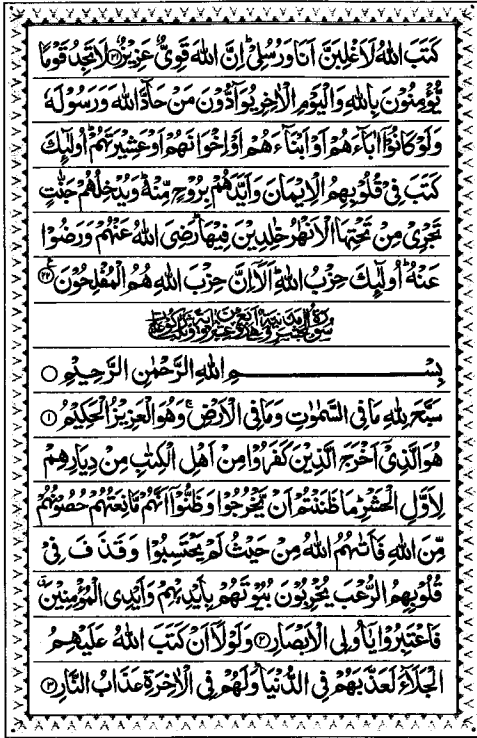 كَتَبَ اللّٰهُ لَاَغْلِبَنَّ اَنَا وَرُسُلِیْ ؕ اِنَّ اللّٰهَ قَوِیٌّ عَزِیْزٌ ﴿۲۱﴾ لَا تَجِدُ قَوْمًا
یُّؤْمِنُوْنَ بِاللّٰهِ وَالْیَوْمِ الْاٰخِرِ یُوَآدُّوْنَ مَنْ حَآدَّ اللّٰهَ وَرَسُوْلَهٗ
وَلَوْ كَانُوْۤا اٰبَآءَهُمْ اَوْ اَبْنَآءَهُمْ اَوْ اِخْوَانَهُمْ اَوْ عَشِیْرَتَهُمْ ؕ اُولٰٓئِكَ
كَتَبَ فِیْ قُلُوْبِهِمُ الْاِیْمَانَ وَاَیَّدَهُمْ بِرُوْحٍ مِّنْهُ ؕ وَیُدْخِلُهُمْ جَنّٰتٍ
تَجْرِیْ مِنْ تَحْتِهَا الْاَنْهٰرُ خٰلِدِیْنَ فِیْهَا ؕ رَضِیَ اللّٰهُ عَنْهُمْ وَرَضُوْا
عَنْهُ ؕ اُولٰٓئِكَ حِزْبُ اللّٰهِ ؕ اَلَاۤ اِنَّ حِزْبَ اللّٰهِ هُمُ الْمُفْلِحُوْنَ ﴿۲۲﴾
بِسْمِ اللّٰهِ الرَّحْمٰنِ الرَّحِیْمِ
سَبَّحَ لِلّٰهِ مَا فِی السَّمٰوٰتِ وَمَا فِی الْاَرْضِ ۚ وَهُوَ الْعَزِیْزُ الْحَكِیْمُ ﴿۱﴾
هُوَ الَّذِیْۤ اَخْرَجَ الَّذِیْنَ كَفَرُوْا مِنْ اَهْلِ الْكِتٰبِ مِنْ دِیَارِهِمْ
لِاَوَّلِ الْحَشْرِ ؕ مَا ظَنَنْتُمْ اَنْ یَّخْرُجُوْا وَظَنُّوْۤا اَنَّهُمْ مَّانِعَتُهُمْ حُصُوْنُهُمْ
مِّنَ اللّٰهِ فَاَتٰىهُمُ اللّٰهُ مِنْ حَیْثُ لَمْ یَحْتَسِبُوْا وَقَذَفَ فِیْ
قُلُوْبِهِمُ الرُّعْبَ یُخْرِبُوْنَ بُیُوْتَهُمْ بِاَیْدِیْهِمْ وَاَیْدِی الْمُؤْمِنِیْنَ
فَاعْتَبِرُوْا یٰۤاُولِی الْاَبْصَارِ ﴿۲﴾ وَلَوْلَاۤ اَنْ كَتَبَ اللّٰهُ عَلَیْهِمُ
الْجَلَآءَ لَعَذَّبَهُمْ فِی الدُّنْیَا ؕ وَلَهُمْ فِی الْاٰخِرَةِ عَذَابُ النَّارِ ﴿۳﴾